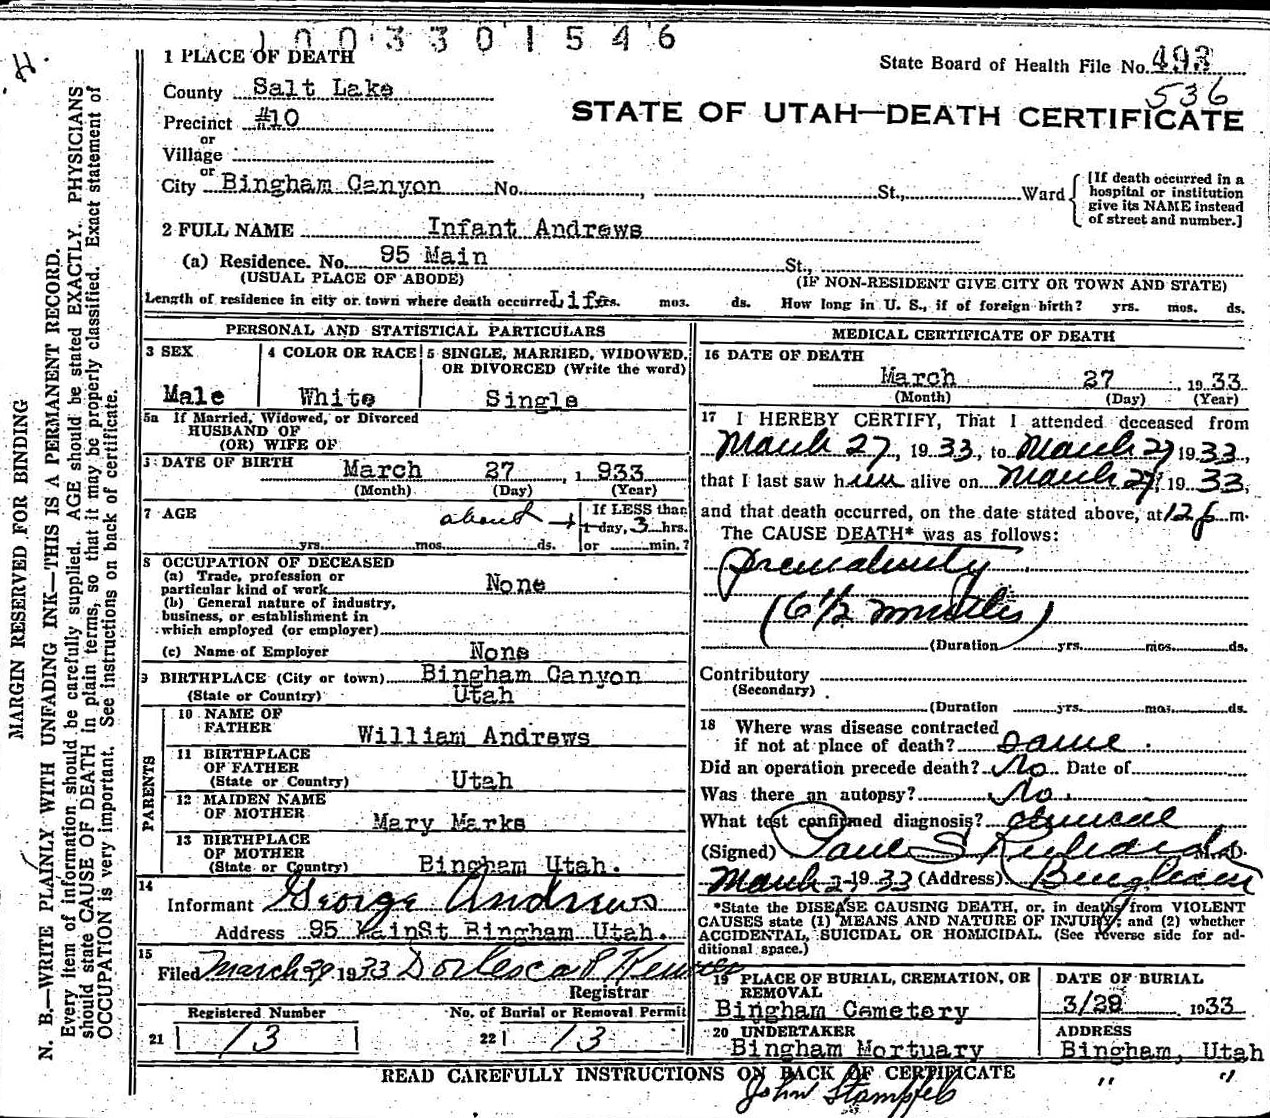 1003301546
H.
MARGIN RESERVED FOR BINDING
N. B.—WRITE PLAINLY WITH UNFADING INK—THIS IS A PERMANENT RECORD.
Every item of information should be carefully supplied. AGE should be stated EXACTLY. PHYSICIANS
should state CAUSE OF DEATH in plain terms, so that it may be properly classified. Exact statement of
OCCUPATION is very important. See instructions on back of certificate.
1 PLACE OF DEATH
State Board of Health File No. 493
536
County Salt Lake
STATE OF UTAH—DEATH CERTIFICATE
Precinct #10
or
Village
or
City Bingham Canyon No. , St., Ward
[If death occurred in a
hospital or institution
give its NAME instead
of street and number.]
2 FULL NAME Infant Andrews
(a) Residence. No. 95 Main St.,
(USUAL PLACE OF ABODE) (IF NON-RESIDENT GIVE CITY OR TOWN AND STATE)
Length of residence in city or town where death occurred Life yrs. mos. ds. How long in U. S., if of foreign birth? yrs. mos. ds.
PERSONAL AND STATISTICAL PARTICULARS
3 SEX 4 COLOR OR RACE 5 SINGLE, MARRIED, WIDOWED,
OR DIVORCED (Write the word)
Male White Single
5a If Married, Widowed, or Divorced
HUSBAND OF
(OR) WIFE OF
DATE OF BIRTH March 27, 1 933
(Month) (Day) (Year)
7 AGE about If LESS than
1 day, 3 hrs.
yrs. mos. ds. or min.?
8 OCCUPATION OF DECEASED
(a) Trade, profession or
particular kind of work None
(b) General nature of industry,
business, or establishment in
which employed (or employer)
(c) Name of Employer None
9 BIRTHPLACE (City or town) Bingham Canyon
(State or Country) Utah
PARENTS
10 NAME OF
FATHER William Andrews
11 BIRTHPLACE
OF FATHER
(State or Country) Utah
12 MAIDEN NAME
OF MOTHER Mary Marks
13 BIRTHPLACE
OF MOTHER
(State or Country) Bingham Utah.
14
Informant George Andrews
Address 95 MainSt Bingham Utah.
15
Filed March 29 1933
Registrar
Registered Number No. of Burial or Removal Permit
21 13 22 13
MEDICAL CERTIFICATE OF DEATH
16 DATE OF DEATH
March 27, 1933
(Month) (Day) (Year)
17 I HEREBY CERTIFY, That I attended deceased from
March 27, 1933, to March 27 1933,
that I last saw him alive on March 27, 1933,
and that death occurred, on the date stated above, at 12 p m.
The CAUSE DEATH* was as follows:
Prematurity
(6 1/2 months)
(Duration yrs. mos. ds.
Contributory
(Secondary)
(Duration yrs. mos. ds.
18 Where was disease contracted
if not at place of death? same
Did an operation precede death? No Date of
Was there an autopsy? No
What test confirmed diagnosis? clinical
(Signed) Paul S Richards M. D.
March 27 1933 (Address) Bingham
*State the DISEASE CAUSING DEATH, or, in deaths from VIOLENT
CAUSES state (1) MEANS AND NATURE OF INJURY; and (2) whether
ACCIDENTAL, SUICIDAL OR HOMICIDAL. (See reverse side for ad-
ditional space.)
19 PLACE OF BURIAL, CREMATION, OR
REMOVAL
Bingham Cemetery
DATE OF BURIAL
3/29 1933
20 UNDERTAKER
Bingham Mortuary
ADDRESS
Bingham, Utah
READ CAREFULLY INSTRUCTIONS ON BACK OF CERTIFICATE
John Stampfels " "